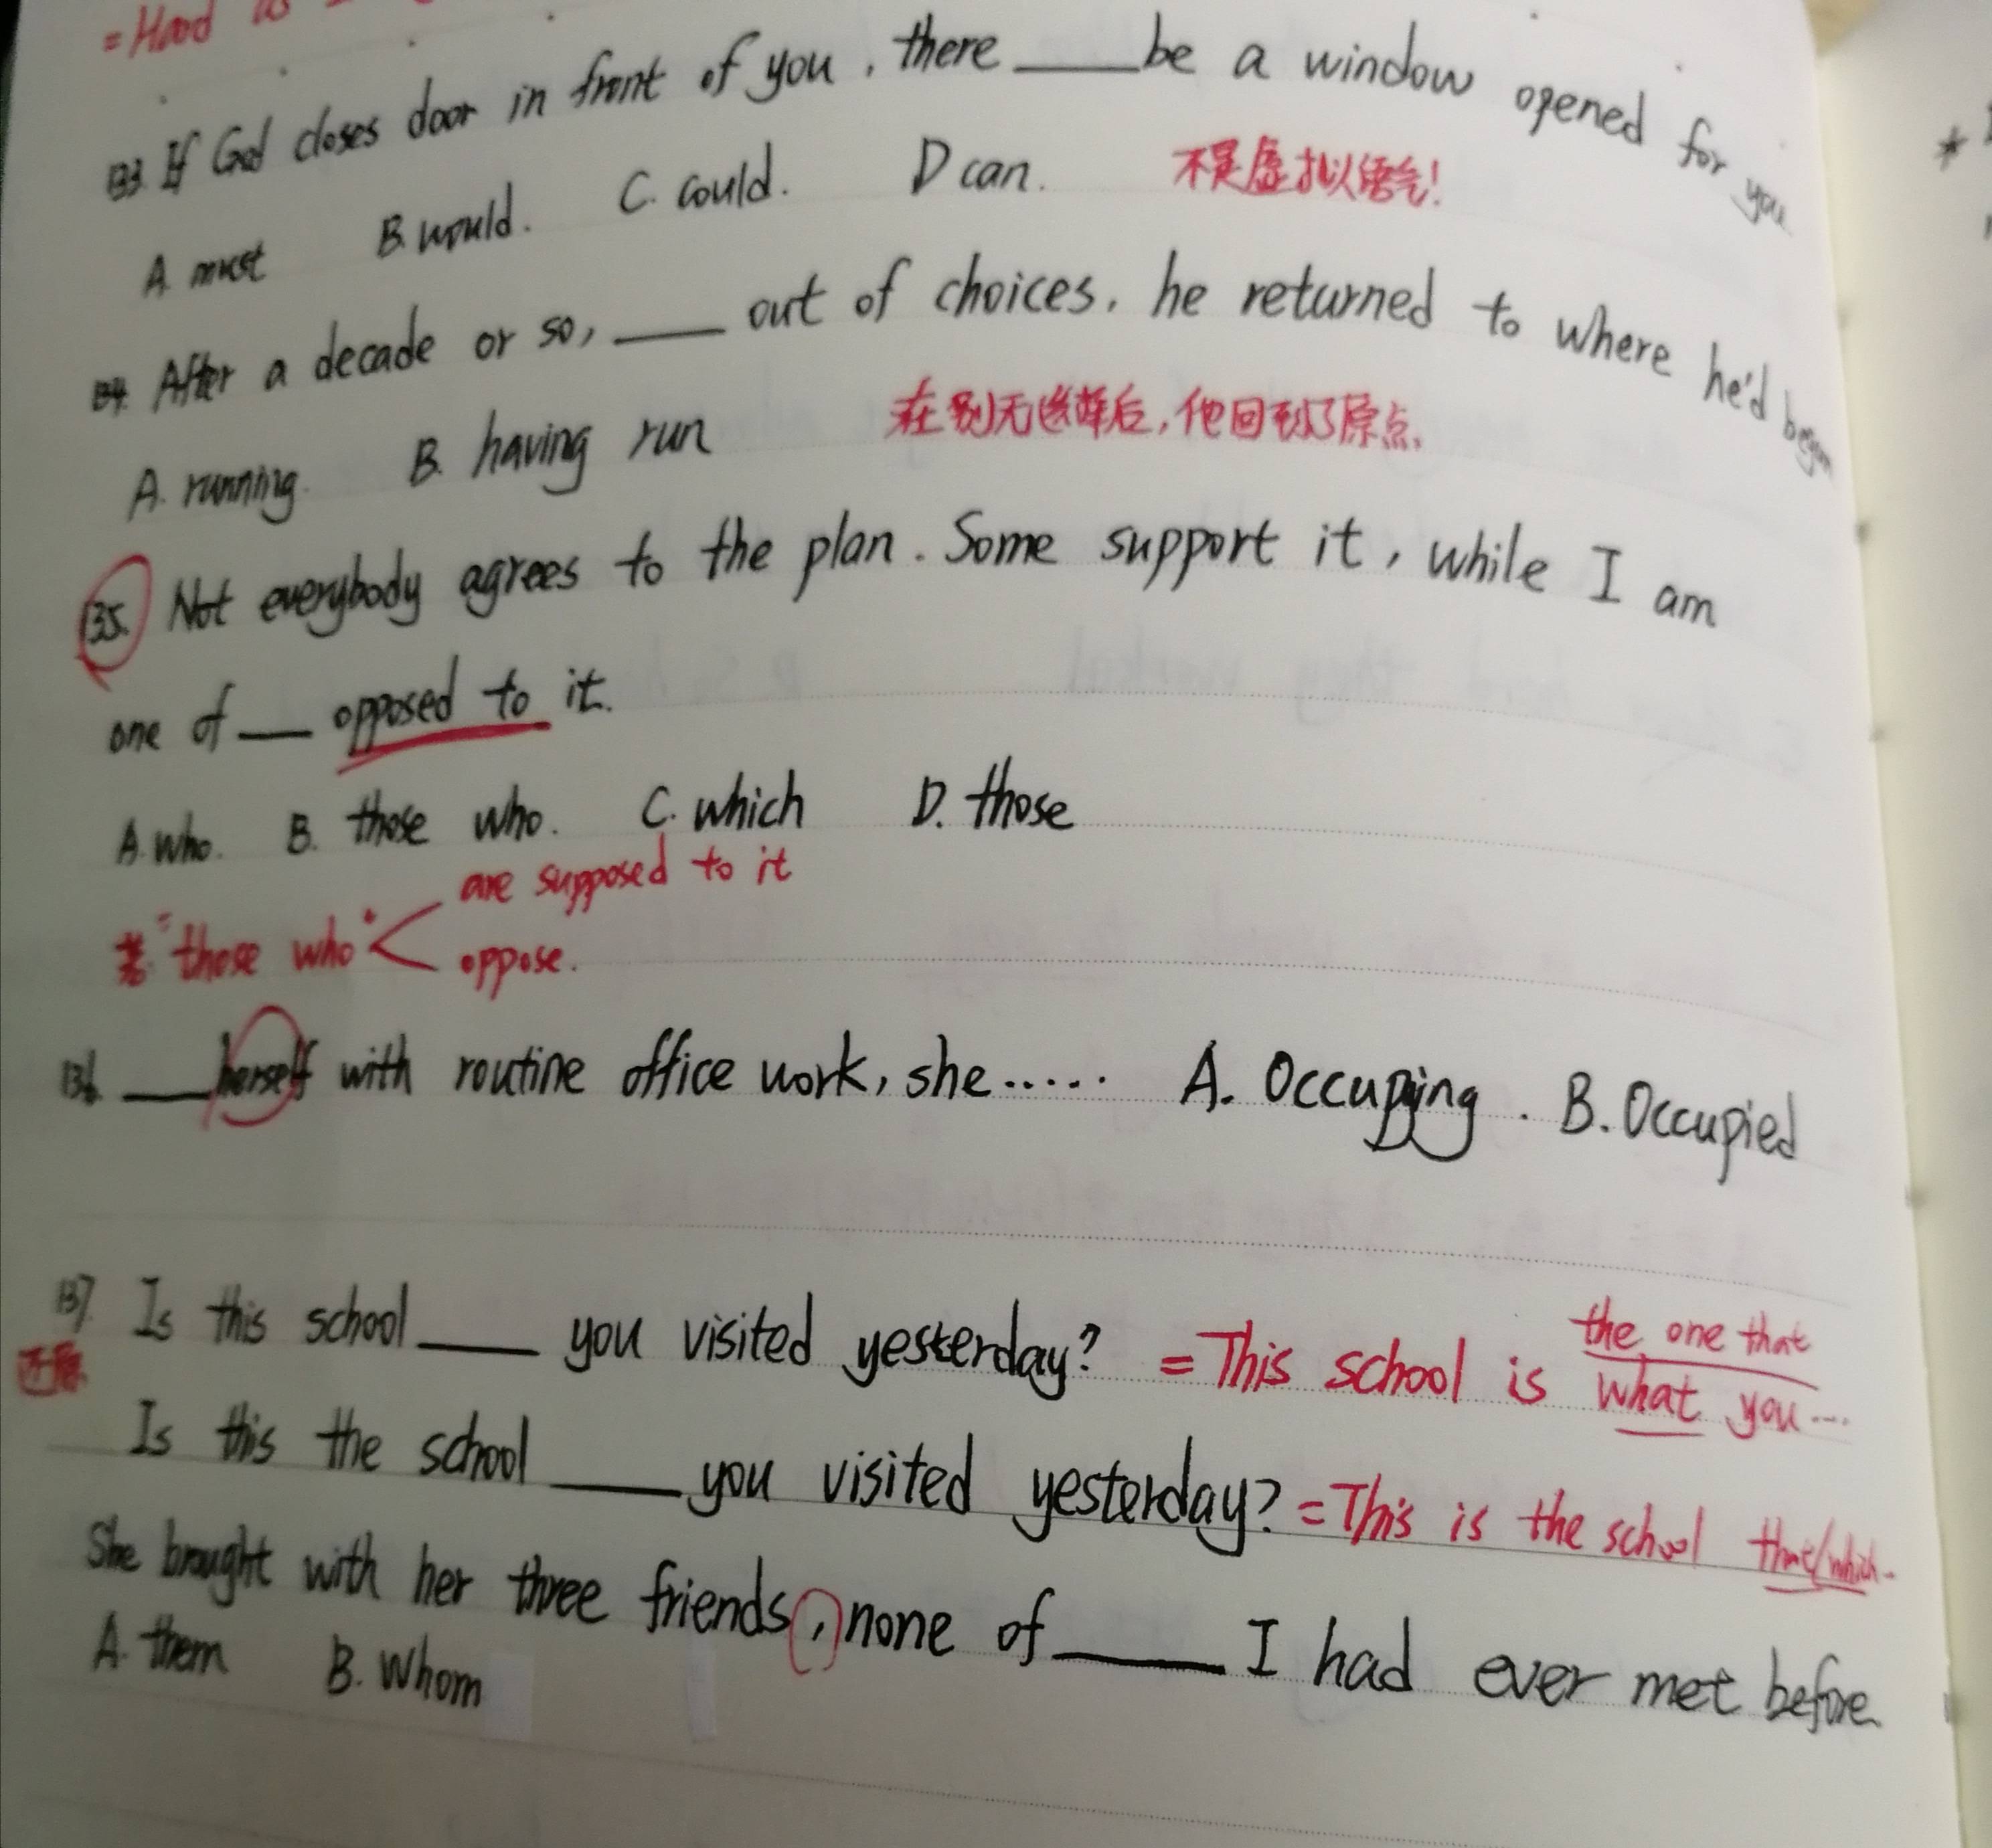 = Hood as
133. If God closes door in front of you, there ____ be a window opened for you
A. must B. would. C. could. D can. 不是虚拟语气!
134. After a decade or so, ____ out of choices, he returned to where he'd began
A. running. B. having run 在别无选择后,他回到了原点.
135. Not everybody agrees to the plan. Some support it, while I am
one of ____ opposed to it.
A. who. B. those who. C. which D. those
are supposed to it
若“those who”
oppose.
136. ____ herself with routine office work, she ..... A. Occupying. B. Occupied
137. Is this school ____ you visited yesterday? = This school is the one that
what you...
还原
Is this the school ____ you visited yesterday? = This is the school that/which.
She brought with her three friends, none of ____ I had ever met before.
A. them B. Whom